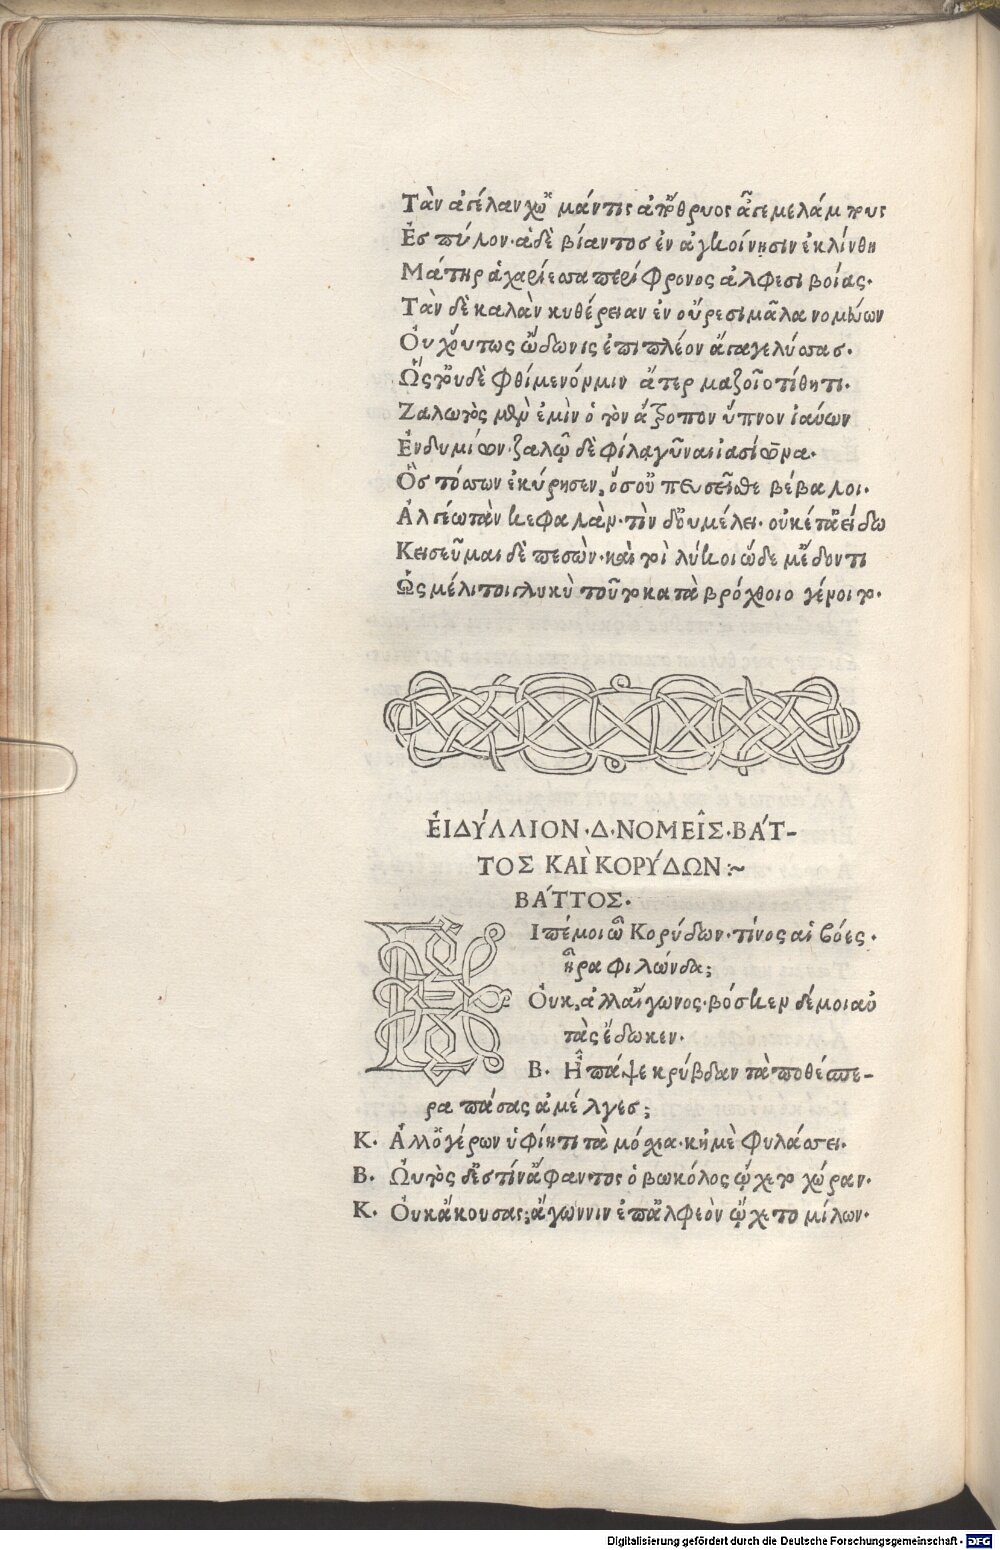 Τὰν ἀγέλαν χὠ μάντις ἀπ' Ὄθρυος ἆγε μελάμπους
Ἐς πύλον. ἁ δὲ βίαντος ἐν ἀγκοίνῃσιν ἐκλίνθη
Μάτηρ ἁ χαρίεσσα περίφρονος ἀλφεσιβοίας.
Τὰν δὲ καλὰν κυθέρειαν ἐν οὔρεσι μᾶλα νομεύων
Οὐχ οὕτως ὤδωνις ἐπὶ πλέον ἄγαγε λύσσας.
Ὥς τ' οὐδὲ φθίμενόν μιν ἄτερ μαζοῖο τίθητι.
Ζαλωτὸς μὲν ἐμὶν ὁ τὸν ἄτροπον ὕπνον ἰαύων
Ἐνδυμίων. ζαλῶ δὲ φίλα γύναι ἰασίωνα.
Ὃς τόσσων ἐκύρησεν, ὅσ' οὐ πευσεῖσθε βέβαλοι.
Ἀλγέω τὰν κεφαλάν. τὶν δ' οὐ μέλει. οὐκέτ' ἀείδω
Κεισεῦμαι δὲ πεσὼν. καὶ τοὶ λύκοι ὧδέ μ' ἔδοντι
Ὡς μέλι τοι γλυκὺ τοῦτο κατὰ βρόχθοιο γένοιτο.
ἘΙΔΎΛΛΙΟΝ. Δ. ΝΟΜΕΙ͂Σ. ΒΆΤ-
ΤΟΣ ΚΑῚ ΚΟΡΎΔΩΝ :~
ΒΆΤΤΟΣ.
ΕΙπέ μοι ὦ Κορύδων. τίνος αἱ βόες.
ἦ ῥα φιλώνδα;
Οὐκ, ἀλλ' αἴγωνος. βόσκεν δέ μοι αὐ
τὰς ἔδωκεν.
Β. Ἦ πᾴ ψε κρύβδαν τὰ ποθέσπε-
ρα πάσας ἀμέλγες;
Κ. Ἀλλ' ὁ γέρων ὑφίητι τὰ μόσχια. κἠμὲ φυλάσσει.
Β. Ὡυτὸς δ' ἐς τίν' ἄφαντος ὁ βωκόλος ᾤχετο χώραν.
Κ. Οὐκ ἄκουσας; ἄγων νιν ἐπ' ἀλφεὸν ᾤχετο μίλων.
Digitalisierung gefördert durch die Deutsche Forschungsgemeinschaft - DFG